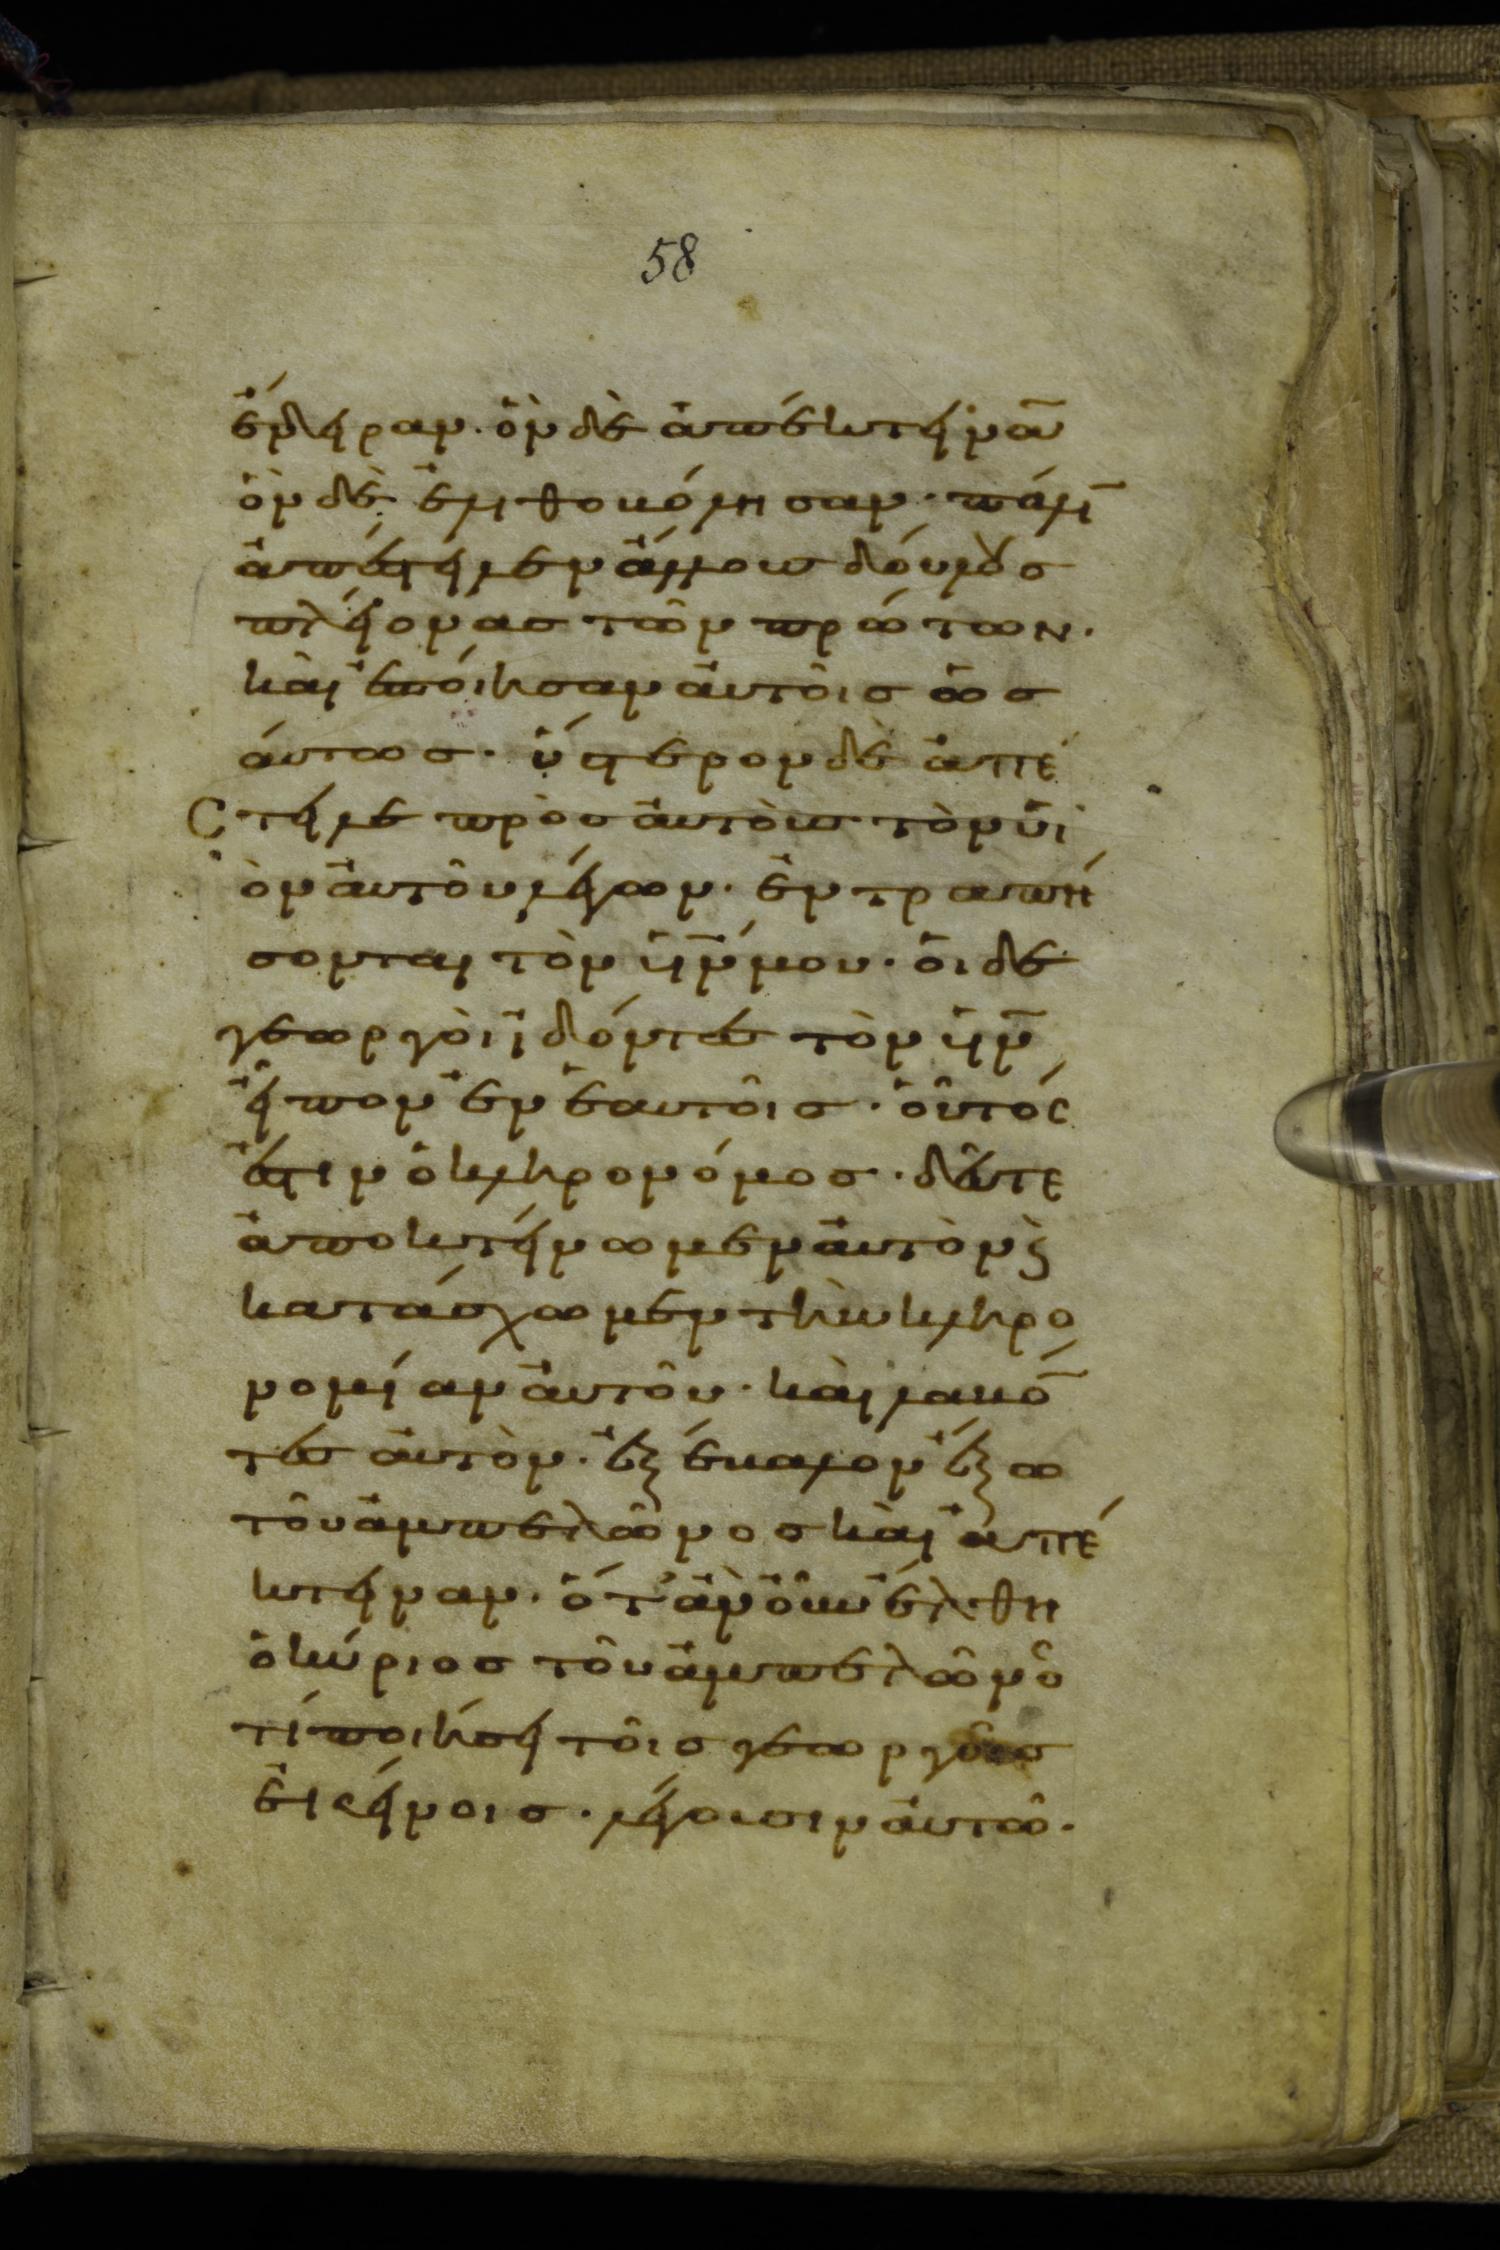 58
ἔδειραν· ὃν δὲ ἀπέκτειναν̄
ὃν δὲ ἐλιθοβόλησαν· πάλῑ
ἀπέστειλεν ἄλλους δούλους
πλείονας τῶν πρώτων·
καὶ ἐποίησαν αὐτοῖς ὡσ
άυτως· ὕστερον δὲ ἀπέ
στειλε πρὸς αὐτοὺς τὸν ὑι
ὸν αὐτοῦ λέγων· ἐντραπή
σονται τὸν ῡν̄ μου· ὁι δὲ
γεωργὸι ἰδόντες τὸν ῡν̄
εἶπον ἐν ἑαυτοῖς· οὗτός
ἐστιν ὁ κληρονόμος· δεῦτε
ἀποκτείνωμεν αὐτὸν ϗ
κατάσχωμεν τὴν κληρο
νομίαν αὐτοῦ· καὶ λαβό̄
τες αὐτὸν· ἐξέβαλον ἔξω
τοῦ ἀμπελῶνος καὶ ἀπέ
κτειναν· ὅτἂν οὖν ἔλθη
ὁ κύριος τοῦ ἀμπελῶνο
τί ποιήσει τοῖς γεωργοῖς
ἐκείνοις· λέγουσιν αὐτῶ·